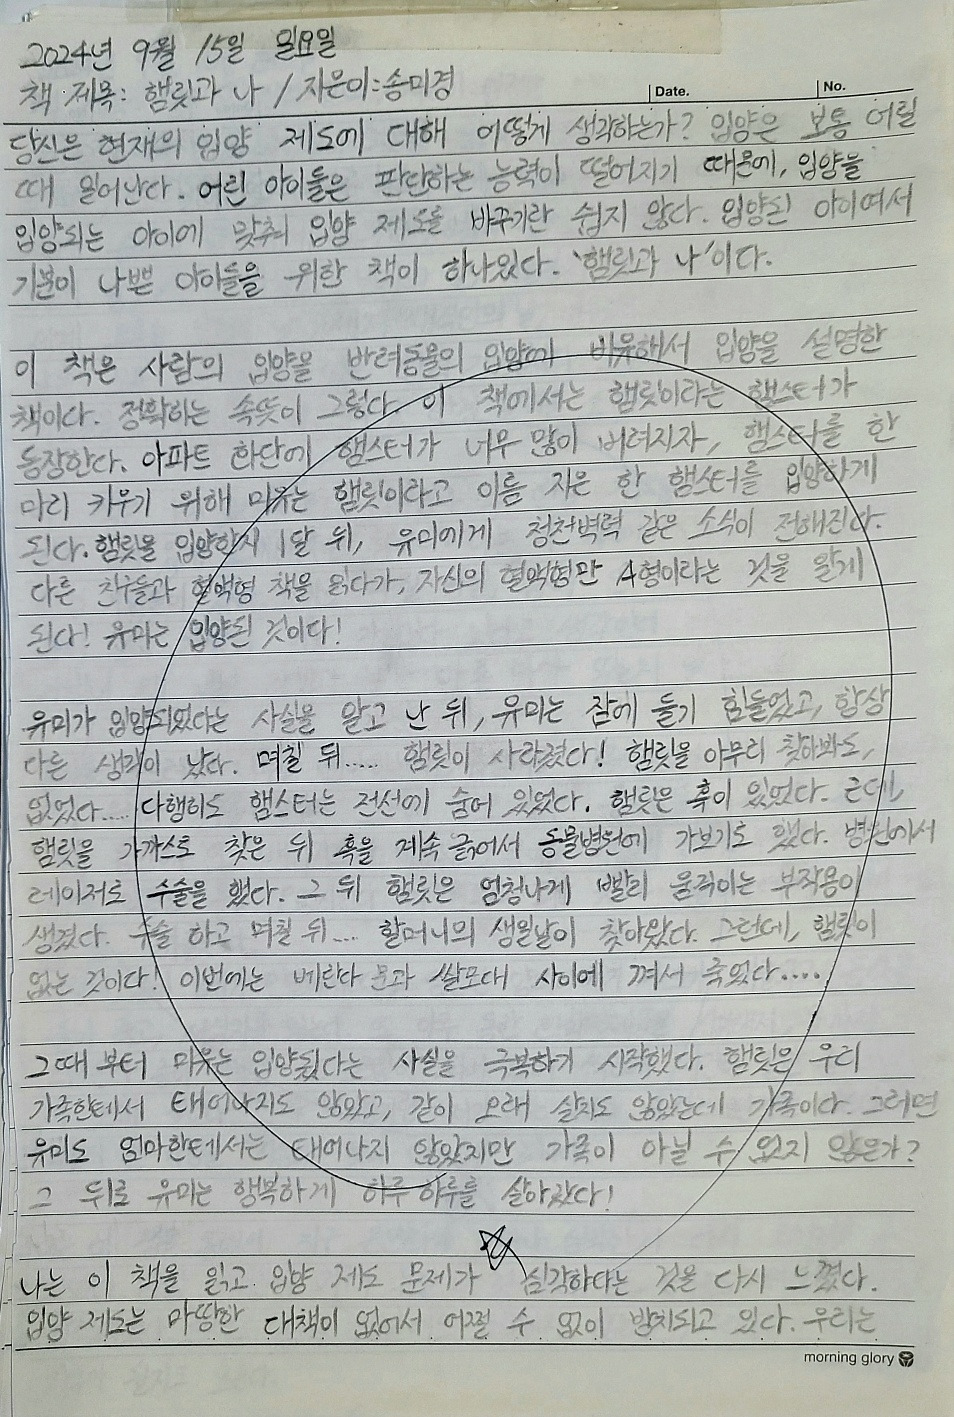 2024년 9월 15일 일요일
책 제목: 햄릿과 나 / 지은이:송미경
Date.
No.
당신은 현재의 입양 제도에 대해 어떻게 생각하는가? 입양은 보통 어릴
때 일어난다. 어린 아이들은 판단하는 능력이 떨어지기 때문에, 입양을
입양되는 아이에 맞춰 입양 제도를 바꾸기란 쉽지 않다. 입양된 아이여서
기분이 나쁜 아이들을 위한 책이 하나있다. '햄릿과 나'이다.
이 책은 사람의 입양을 반려동물의 입양에 비유해서 입양을 설명한
책이다. 정확하는 속뜻이 그렇다. 이 책에서는 햄릿이라는 햄스터가
등장한다. 아파트 화단에 햄스터가 너무 많이 버려지자, 햄스터를 한
마리 키우기 위해 미유는 햄릿이라고 이름 지은 한 햄스터를 입양하게
된다. 햄릿을 입양한지 1달 뒤, 유미에게 청천벽력 같은 소식이 전해진다.
다른 친구들과 혈액형 책을 읽다가, 자신의 혈액형만 A형이라는 것을 알게
된다! 유미는 입양된 것이다!
유미가 입양되었다는 사실을 알고 난 뒤, 유미는 잠에 들기 힘들었고, 항상
다른 생각이 났다. 며칠 뒤..... 햄릿이 사라졌다! 햄릿을 아무리 찾아봐도,
없었다..... 다행히도 햄스터는 전선에 숨어 있었다. 햄릿은 혹이 있었다. 근데,
햄릿을 가까스로 찾은 뒤 혹을 계속 긁어서 동물병원에 가보기도 했다. 병원에서
레이저로 수술을 했다. 그 뒤 햄릿은 엄청나게 빨리 움직이는 부작용이
생겼다. 수술 하고 며칠 뒤.... 할머니의 생일날이 찾아왔다. 그런데, 햄릿이
없는 것이다! 이번에는 베란다 문과 쌀포대 사이에 껴서 죽었다....
그때 부터 미유는 입양됬다는 사실을 극복하기 시작했다. 햄릿은 우리
가족한테서 태어나지도 않았고, 같이 오래 살지도 않았는데 가족이다. 그러면
유미도 엄마한테서는 태어나지 않았지만 가족이 아닐 수 없지 않은가?
그 뒤로 유미는 행복하게 하루 하루를 살아갔다!
나는 이 책을 읽고 입양 제도 문제가 심각하다는 것을 다시 느꼈다.
입양 제도는 마땅한 대책이 없어서 어쩔 수 없이 방치되고 있다. 우리는
morning glory